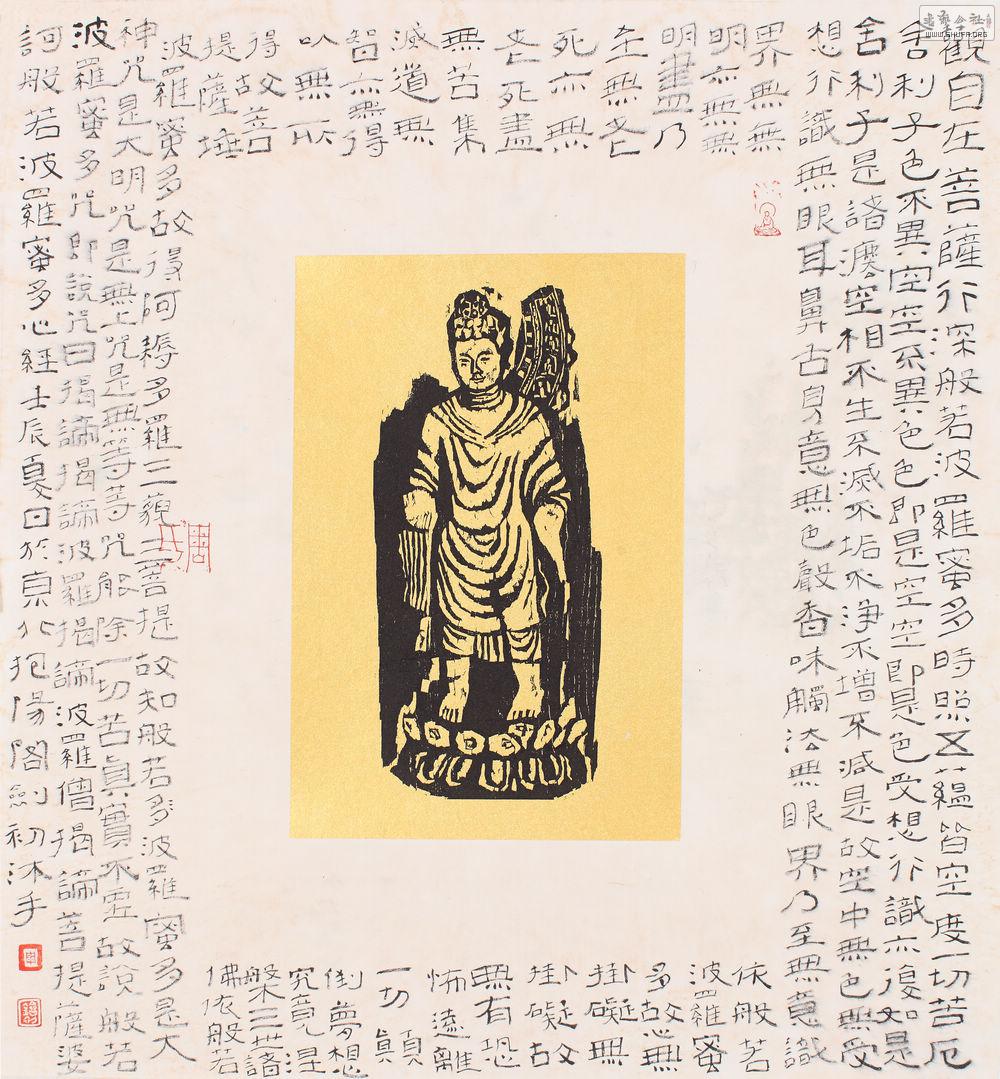 觀自在菩薩行深般若波羅蜜多時照五蘊皆空度一切苦厄
舍利子色不異空空不異色色即是空空即是色受想行識亦復如是
舍利子是諸灋空相不生不滅不垢不淨不增不減是故空中無色無受
想行識無眼耳鼻舌身意無色聲香味觸法無眼界乃至無意識
界無無
明亦無無
明盡乃
至無老
死亦無
老死盡
無苦集
滅道無
智亦無得
以無所
得故菩
提薩埵
依般若
波羅蜜
多故心無
掛礙無
掛礙故
無有恐
怖遠離
一切顛
倒夢想
究竟涅
槃三世諸
佛依般若
波羅蜜多故得阿耨多羅三藐三菩提故知般若多波羅蜜多是大
神咒是大明咒是無上咒是無等等咒能除一切苦真實不虛故說般若
波羅蜜多咒即說咒曰揭諦揭諦波羅揭諦波羅僧揭諦菩提薩婆
訶般若波羅蜜多心經壬辰夏日於京北抱陽閣劍初沐手
書藝公社
WWW.SHUFA.ORG